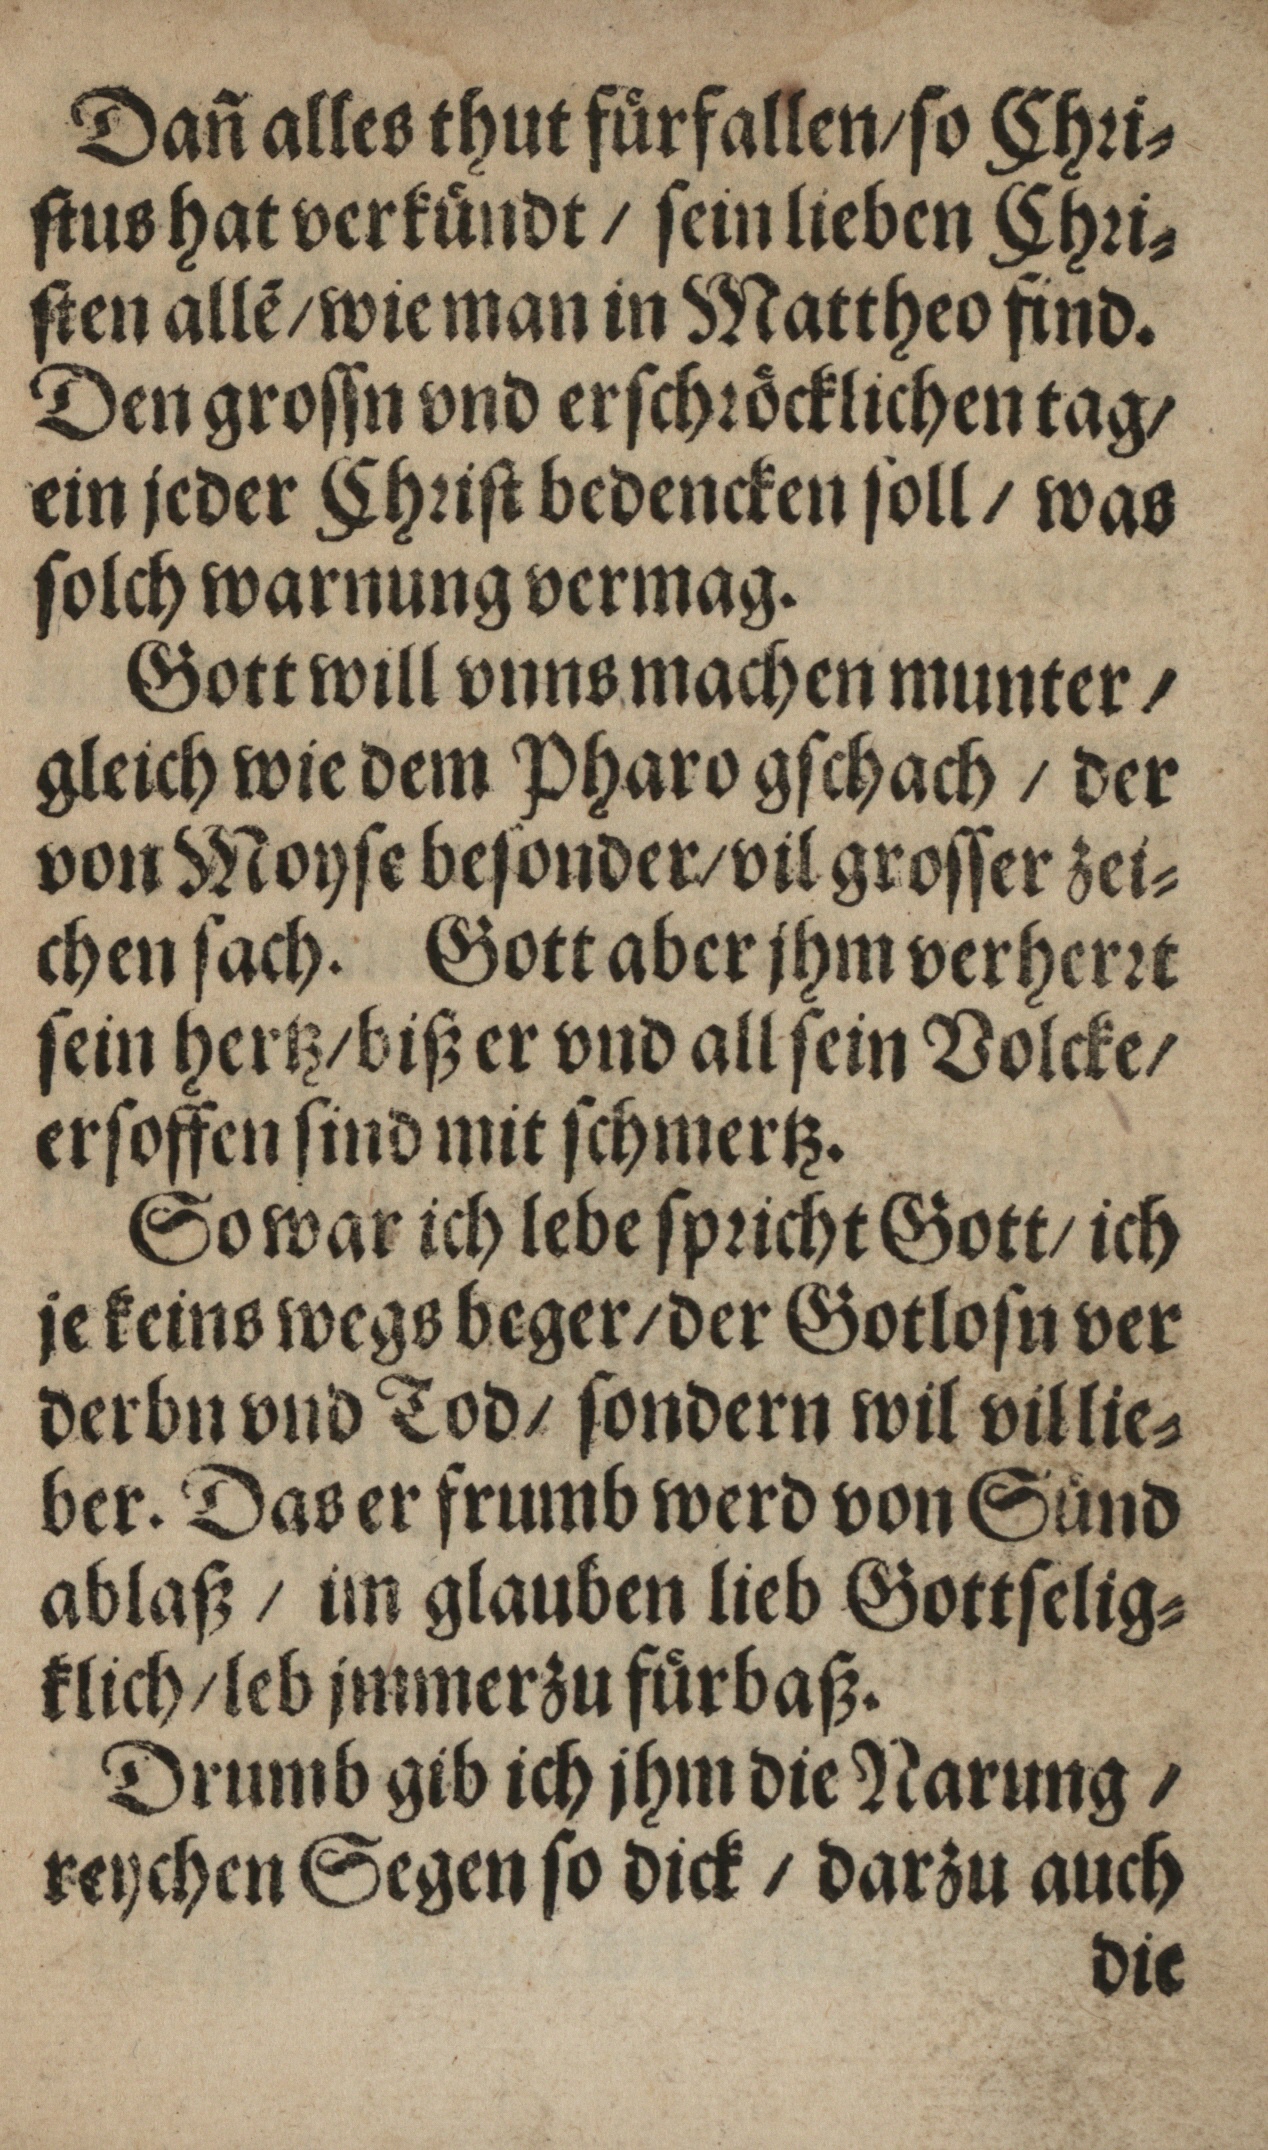 Dañ alles thut fuͤrfallen/so Chri⸗
stus hat verkuͤndt / sein lieben Chri⸗
sten allē/wie man in Mattheo find.
Den grossn vnd erschroͤcklichen tag/
ein jeder Christ bedencken soll / was
solch warnung vermag.
Gott will vnns machen munter /
gleich wie dem Pharo gschach / der
von Moyse besonder/vil grosser zei⸗
chen sach. Gott aber jhm verherrt
sein hertz/biß er vnd all sein Volcke/
ersoffen sind mit schmertz.
So war ich lebe spricht Gott/ ich
je keins wegs beger/der Gotlosn ver
derbn vnd Tod/ sondern wil vil lie⸗
ber. Das er frumb werd von Suͤnd
ablaß / im glauben lieb Gottselig⸗
klich/leb jmmerzu fuͤrbaß.
Drumb gib ich jhm die Narung /
reychen Segen so dick / darzu auch
die